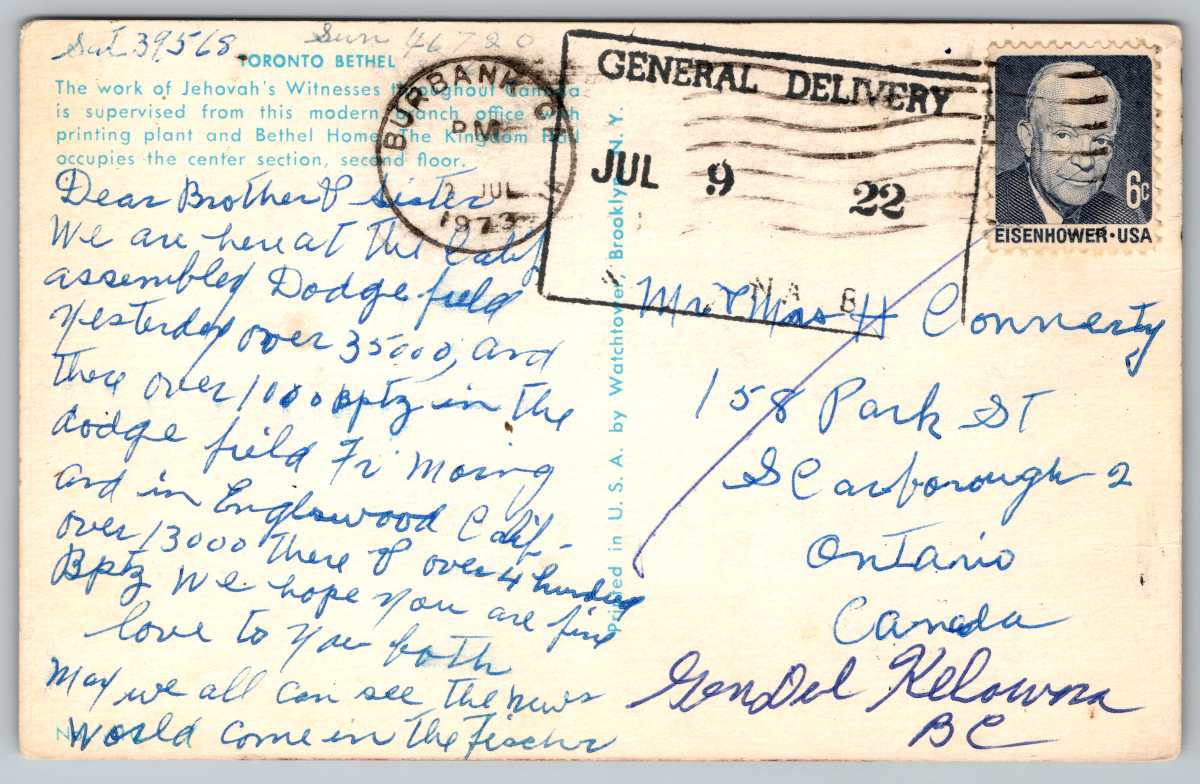 Sat 39568 Sun 46720
TORONTO BETHEL
The work of Jehovah's Witnesses throughout Canada
is supervised from this modern branch office with
printing plant and Bethel Home. The Kingdom Hall
occupies the center section, second floor.
Dear Brother & Sister
We are here at the Calif
assembley Dodge field
Yesterday over 35000, and
there over 1000 Bptz in the
dodge field Fri Moring
and in Englewood Calif -
over 13000 there & over 4 hundred
Bptz We hope you are fine
love to you both
May we all can see the news
World come in the
Printed in U. S. A. by Watchtower, Brooklyn, N. Y.
BURBANK, CA
PM
2 JUL
1973
GENERAL DELIVERY
JUL 9 22
N A B
6c
EISENHOWER · USA
Mr & Mrs H Connerty
158 Park ST
Scarborough 2
Ontario
Canada
Gen Del Kelowna
BC